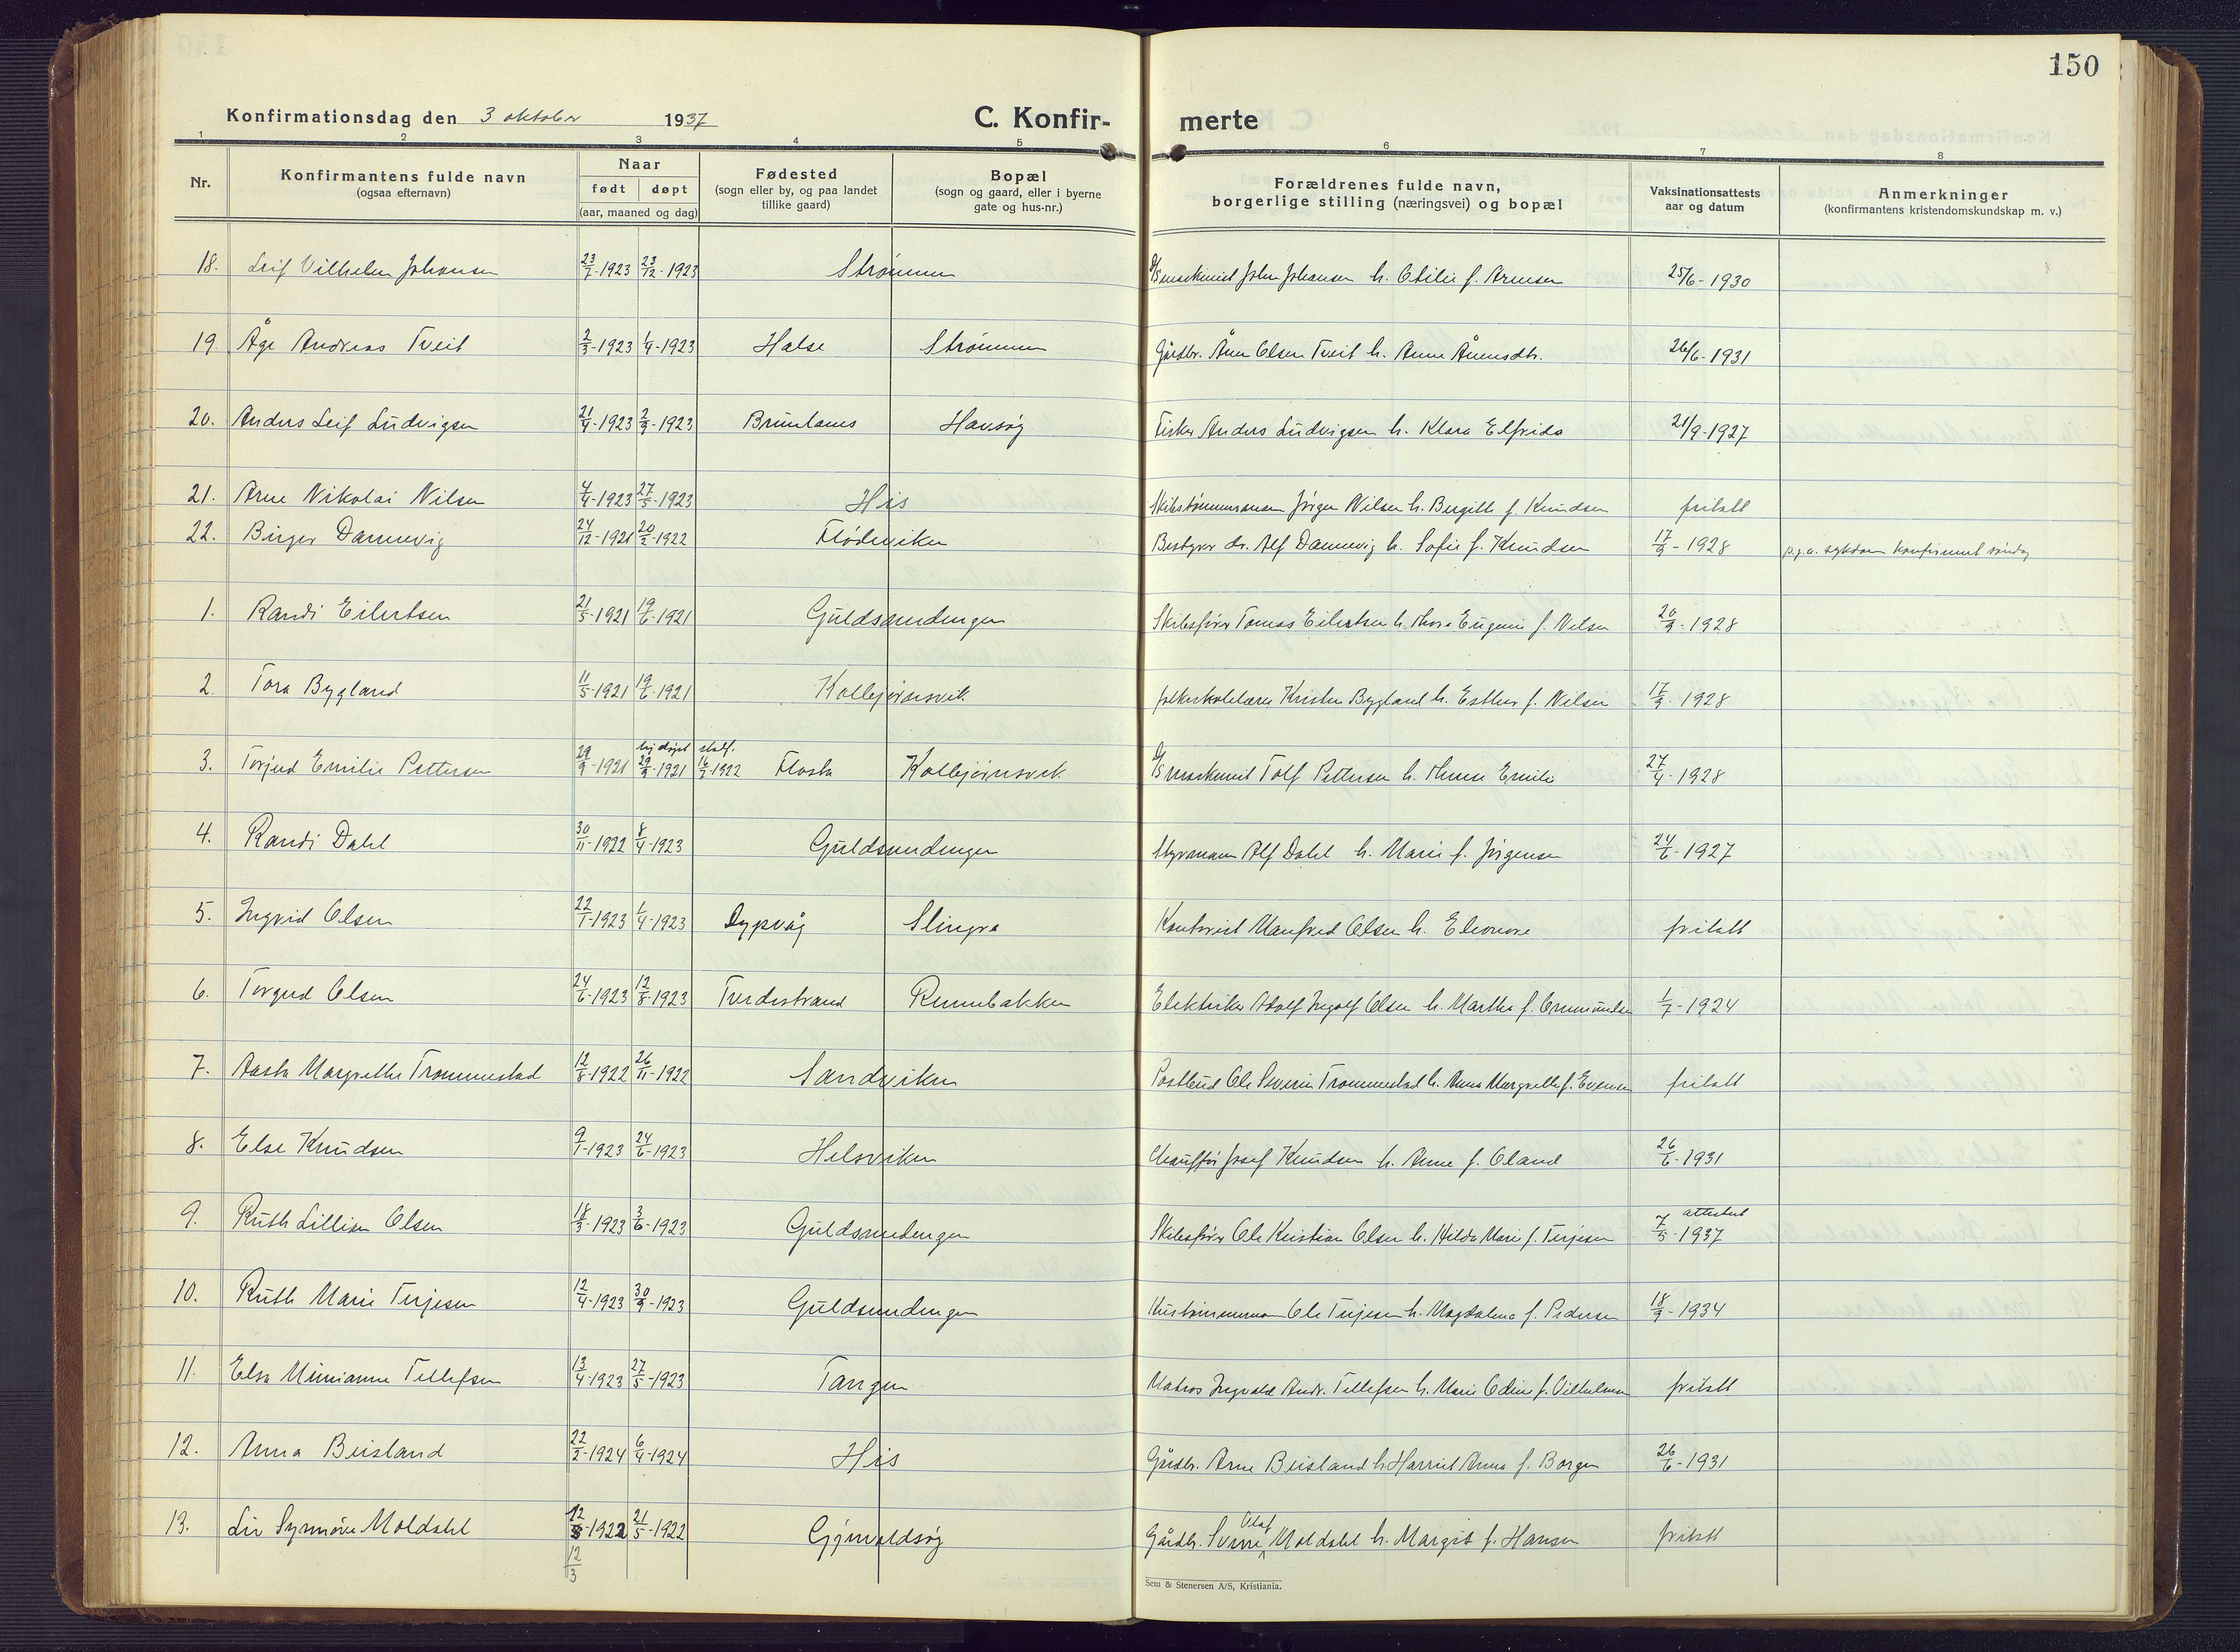 150
Konfirmationsdag den 3 oktober 1937
C. Konfir- merte
1 2 3 4 5 6 7 8
Nr.
Konfirmantens fulde navn
(ogsaa efternavn)
Naar
født døpt
(aar, maaned og dag)
Fødested
(sogn eller by, og paa landet
tillike gaard)
Bopæl
(sogn og gaard, eller i byerne
gate og hus-nr.)
Forældrenes fulde navn,
borgerlige stilling (næringsvei) og bopæl
Vaksinationsattests
aar og datum
Anmerkninger
(konfirmantens kristendomskundskap m. v.)
18. Leif Vilhelm Johansen 23/7-1923 23/12-1923 Strømmen John Johansen h. Otilie f. Arnesen 25/6-1930
19. Åge Andreas Tveit 2/3-1923 1/4-1923 Halse Strømmen Gårdbr. Olsen Tveit h. Anne 26/6-1931
20. Anders Leif Ludvigsen 21/4-1923 2/9-1923 Brunlanes Havsøy Fisker Anders Ludvigsen h. Klara Elfrida 21/9-1927
21. Arne Nikolai Nilsen 4/4-1923 27/5-1923 His Skibstømmermann Jørgen Nilsen h. Bergitte f. Knudsen fritatt
22. Birger Dannevig 24/12-1921 20/2-1922 Flødeviken Bestyrer dr. Alf Dannevig h. Sofie f. Knudsen 17/9-1928 p.g.a. sykdom konfirmert
1. Randi Eilertsen 21/5-1921 19/6-1921 Guldsmedengen Skibsfører Tomas Eilertsen h. Thora Eugenie f. Nilsen 20/9-1928
2. Tora Bygland 11/5-1921 19/6-1921 Kolbjørnsvik folkeskolelærer Kristen Bygland h. Esther f. Nilsen 17/9-1928
3. Torjud Emilie Pettersen 29/9-1921 hj.døpt 29/9-1921 stadf. 16/7-1922 Flosta Kolbjørnsvik Tolf Pettersen h. Emilie 27/4-1928
4. Randi Dahl 30/11-1922 8/4-1923 Guldsmedengen Styrmann Alf Dahl h. Marie f. Jørgensen 24/6-1927
5. Ingrid Olsen 22/1-1923 1/4-1923 Dypvåg Slingra Kontorist Manfred Olsen h. Eleonore fritatt
6. Torgud Olsen 24/6-1923 12/8-1923 Tvedestrand Rennebakken Elektriker Adolf Ingolf Olsen h. Martha f. Ommundsen 1/7-1924
7. Aasta Margrethe Trommestad 12/8-1922 26/11-1922 Sandviken Postbud Ole Severin Trommestad h. Anna Margrethe f. Evensen fritatt
8. Else Knudsen 9/1-1923 24/6-1923 Helsviken Chauffør Josef Knudsen h. Anne f. Oland 26/6-1931
9. Ruth Lillian Olsen 18/3-1923 3/6-1923 Guldsmedengen Skibsfører Ole Kristian Olsen h. Hilda Marie f. Terjesen attestert 7/5-1937
10. Ruth Marie Terjesen 12/4-1923 30/9-1923 Guldsmedengen Ole Terjesen h. Magdalena f. Pedersen 18/9-1934
11. Elsa Minianne Tellefsen 13/4-1923 27/5-1923 Tangen Matros Ingvald Andr. Tellefsen h. Marie Odine f. Vilhelmsen fritatt
12. Anna Beisland 22/2-1924 6/4-1924 His Gårdbr. Arne Beisland h. Harriet Anna f. Borgen 26/6-1931
13. Liv Synnøve Moldahl 12/3-1922 21/5-1922 Gjervoldsøy Gårdbr. Sverre Olaf Moldahl h. Margit f. Hansen fritatt
12/3
Sem & Stenersen A/S, Kristiania.